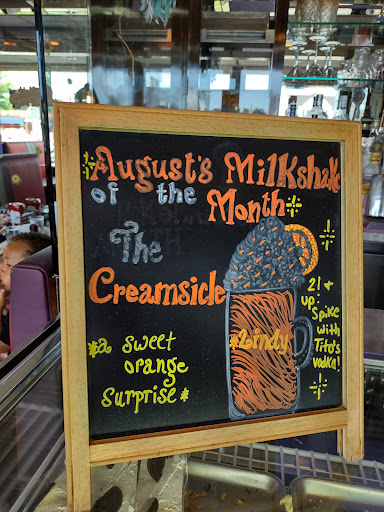 August's Milkshake
of the Month
The
Creamsicle
*a sweet
orange
surprise*
*Lindy
21 +
up:
Spike
with
Tito's
vodka!